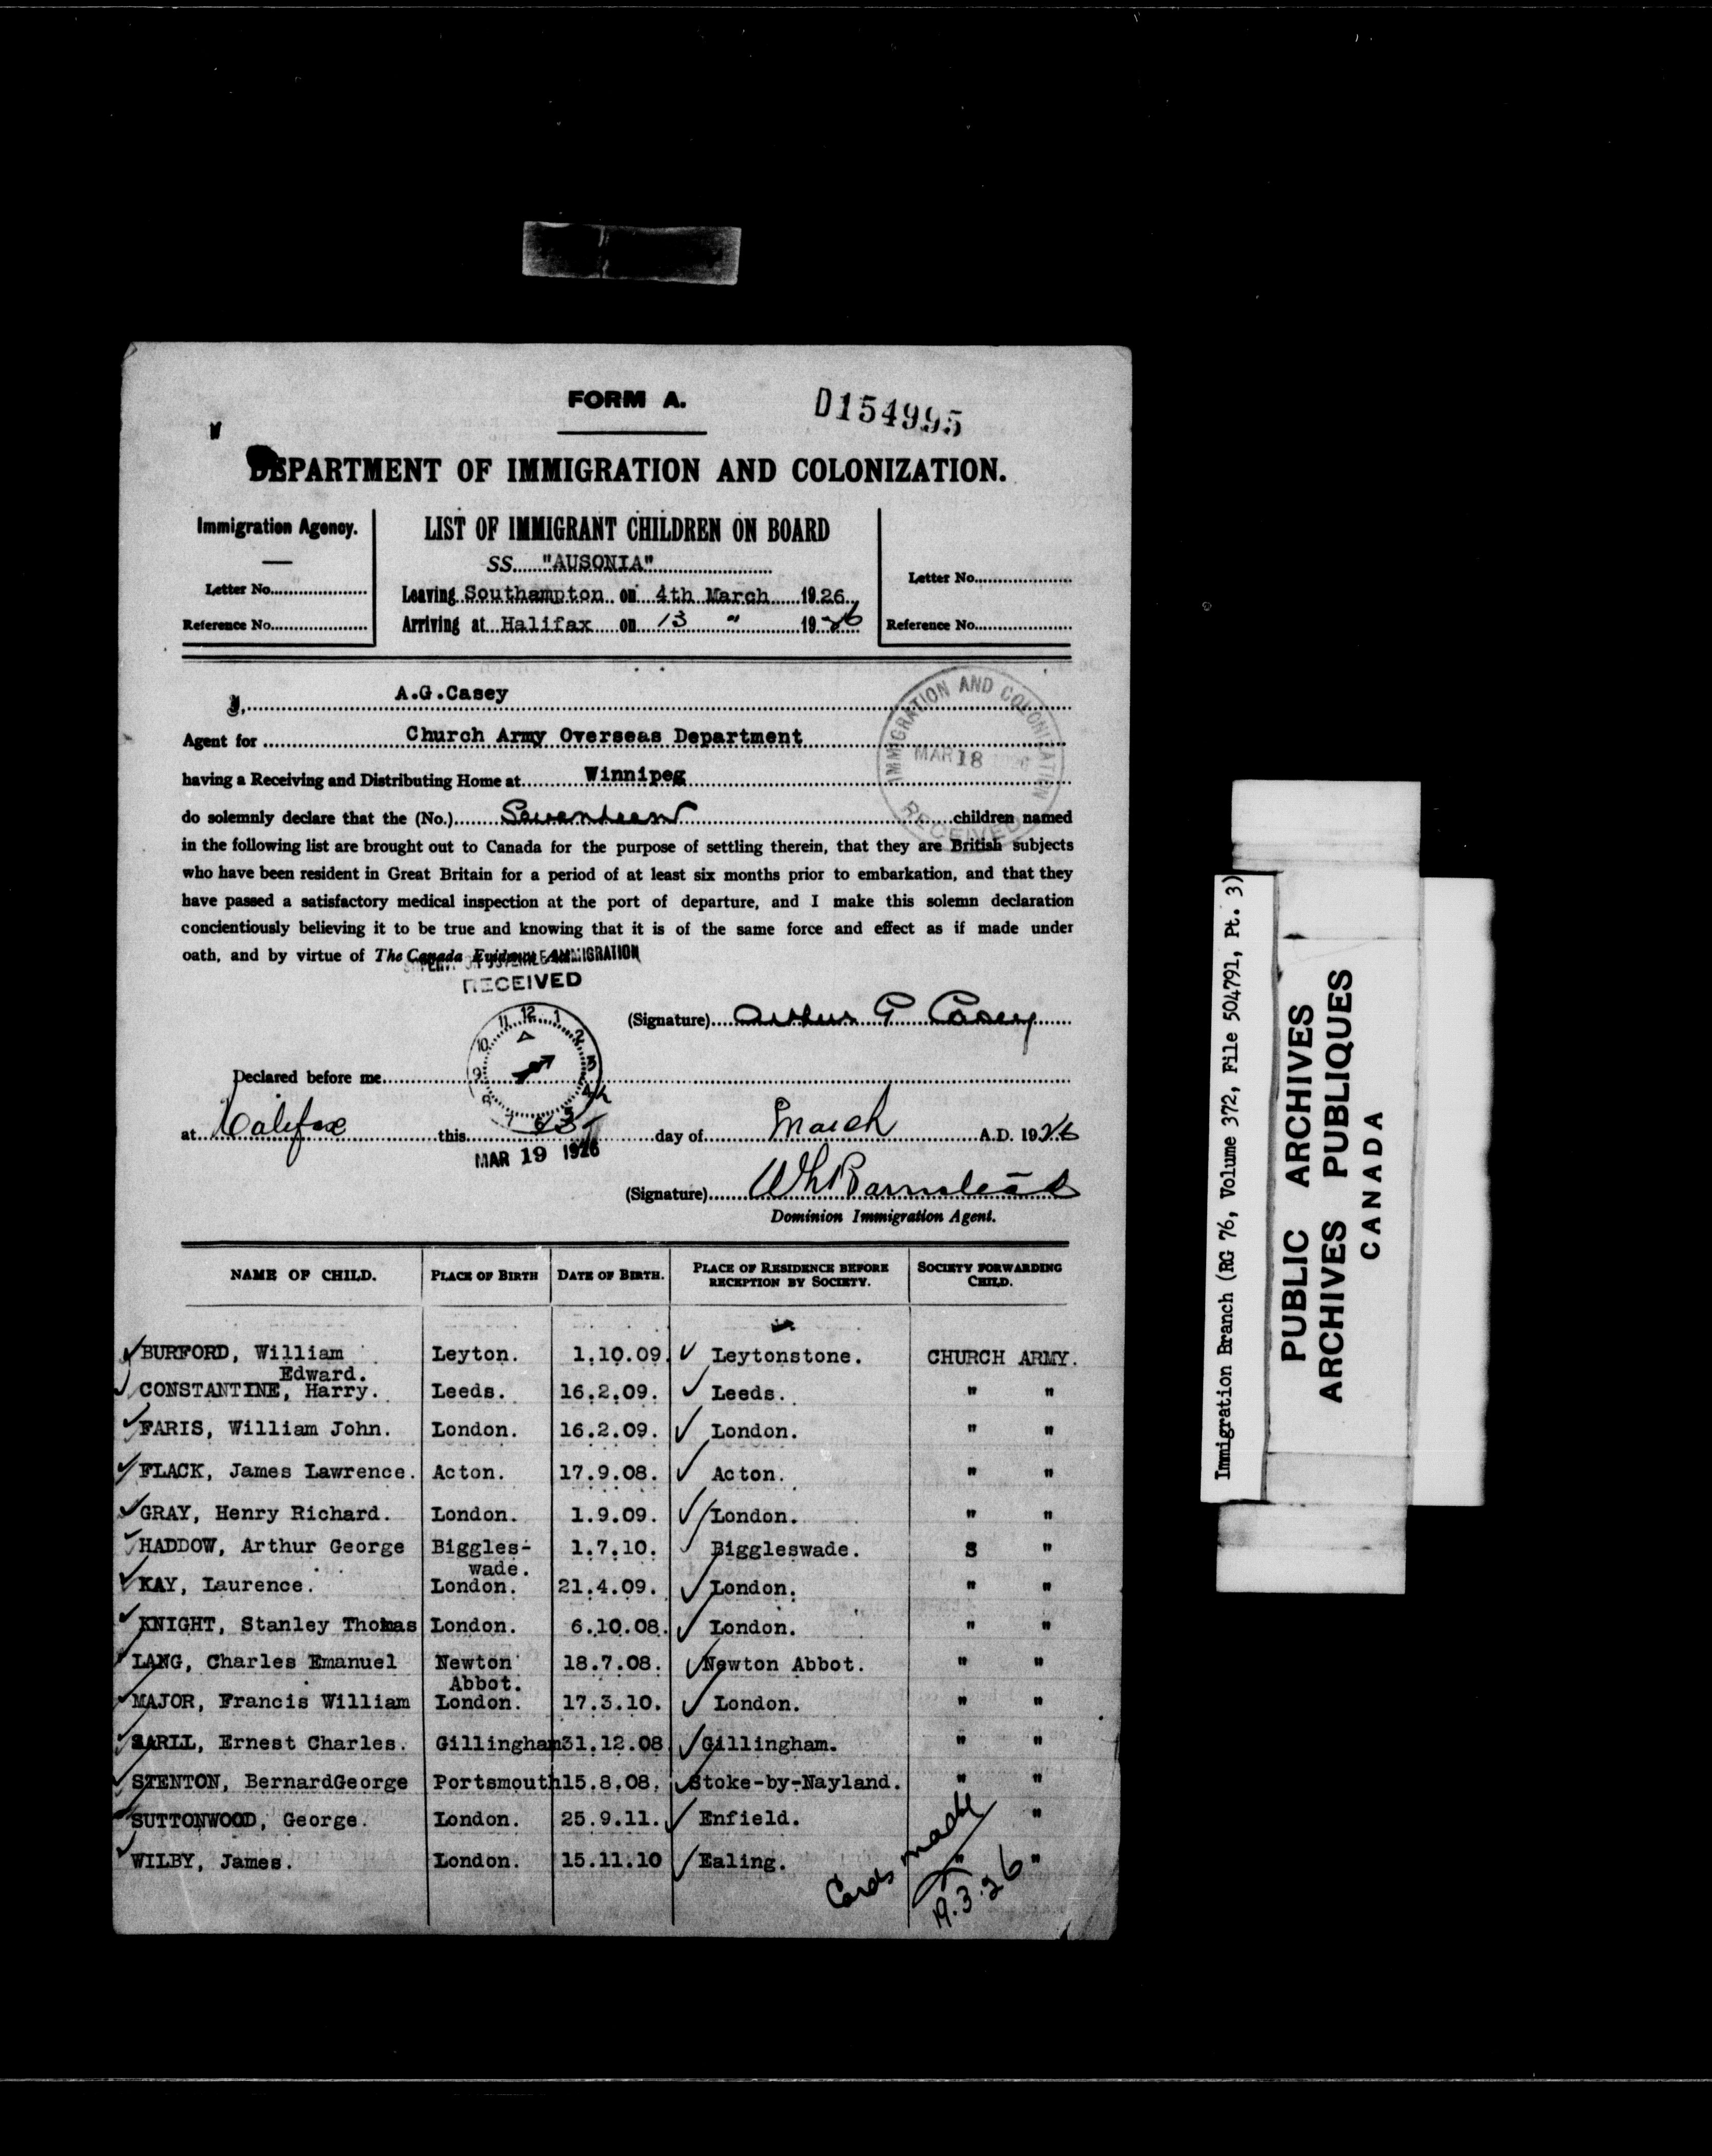 FORM A.
D154995
DEPARTMENT OF IMMIGRATION AND COLONIZATION.
Immigration Agency.
Letter No.
Reference No.
LIST OF IMMIGRANT CHILDREN ON BOARD
SS. "AUSONIA"
Leaving Southampton on 4th March 1926
Arriving at Halifax on 13 " 1926
Letter No.
Reference No.
I, A.G.Casey
Agent for Church Army Overseas Department
having a Receiving and Distributing Home at Winnipeg
IMMIGRATION AND COLONIZATION
MAR 18
RECEIVED
do solemnly declare that the (No.) Seventeen children named
in the following list are brought out to Canada for the purpose of settling therein, that they are British subjects
who have been resident in Great Britain for a period of at least six months prior to embarkation, and that they
have passed a satisfactory medical inspection at the port of departure, and I make this solemn declaration
concientiously believing it to be true and knowing that it is of the same force and effect as if made under
oath, and by virtue of The Canada Evidence Act
IMMIGRATION
RECEIVED
(Signature) Arthur G Casey
Declared before me
at Halifax this 13th day of March A.D. 1926
MAR 19 1926
(Signature) WhBarnstead
Dominion Immigration Agent.
NAME OF CHILD. PLACE OF BIRTH DATE OF BIRTH. PLACE OF RESIDENCE BEFORE RECEPTION BY SOCIETY. SOCIETY FORWARDING CHILD.
BURFORD, William Edward. Leyton. 1.10.09. Leytonstone. CHURCH ARMY.
CONSTANTINE, Harry. Leeds. 16.2.09. Leeds. " "
FARIS, William John. London. 16.2.09. London. " "
FLACK, James Lawrence. Acton. 17.9.08. Acton. " "
GRAY, Henry Richard. London. 1.9.09. London. " "
HADDOW, Arthur George Biggles-wade. 1.7.10. Biggleswade. S "
KAY, Laurence. London. 21.4.09. London. " "
KNIGHT, Stanley Thomas London. 6.10.08. London. " "
LANG, Charles Emanuel Newton Abbot. 18.7.08. Newton Abbot. " "
MAJOR, Francis William London. 17.3.10. London. " "
SARLL, Ernest Charles. Gillingham 31.12.08 Gillingham. " "
STENTON, BernardGeorge Portsmouth 15.8.08. Stoke-by-Nayland. " "
SUTTONWOOD, George. London. 25.9.11. Enfield. "
WILBY, James. London. 15.11.10 Ealing. " "
Cards made
19.3.26
Immigration Branch (RG 76, Volume 372, File 504791, Pt. 3)
PUBLIC ARCHIVES
ARCHIVES PUBLIQUES
CANADA